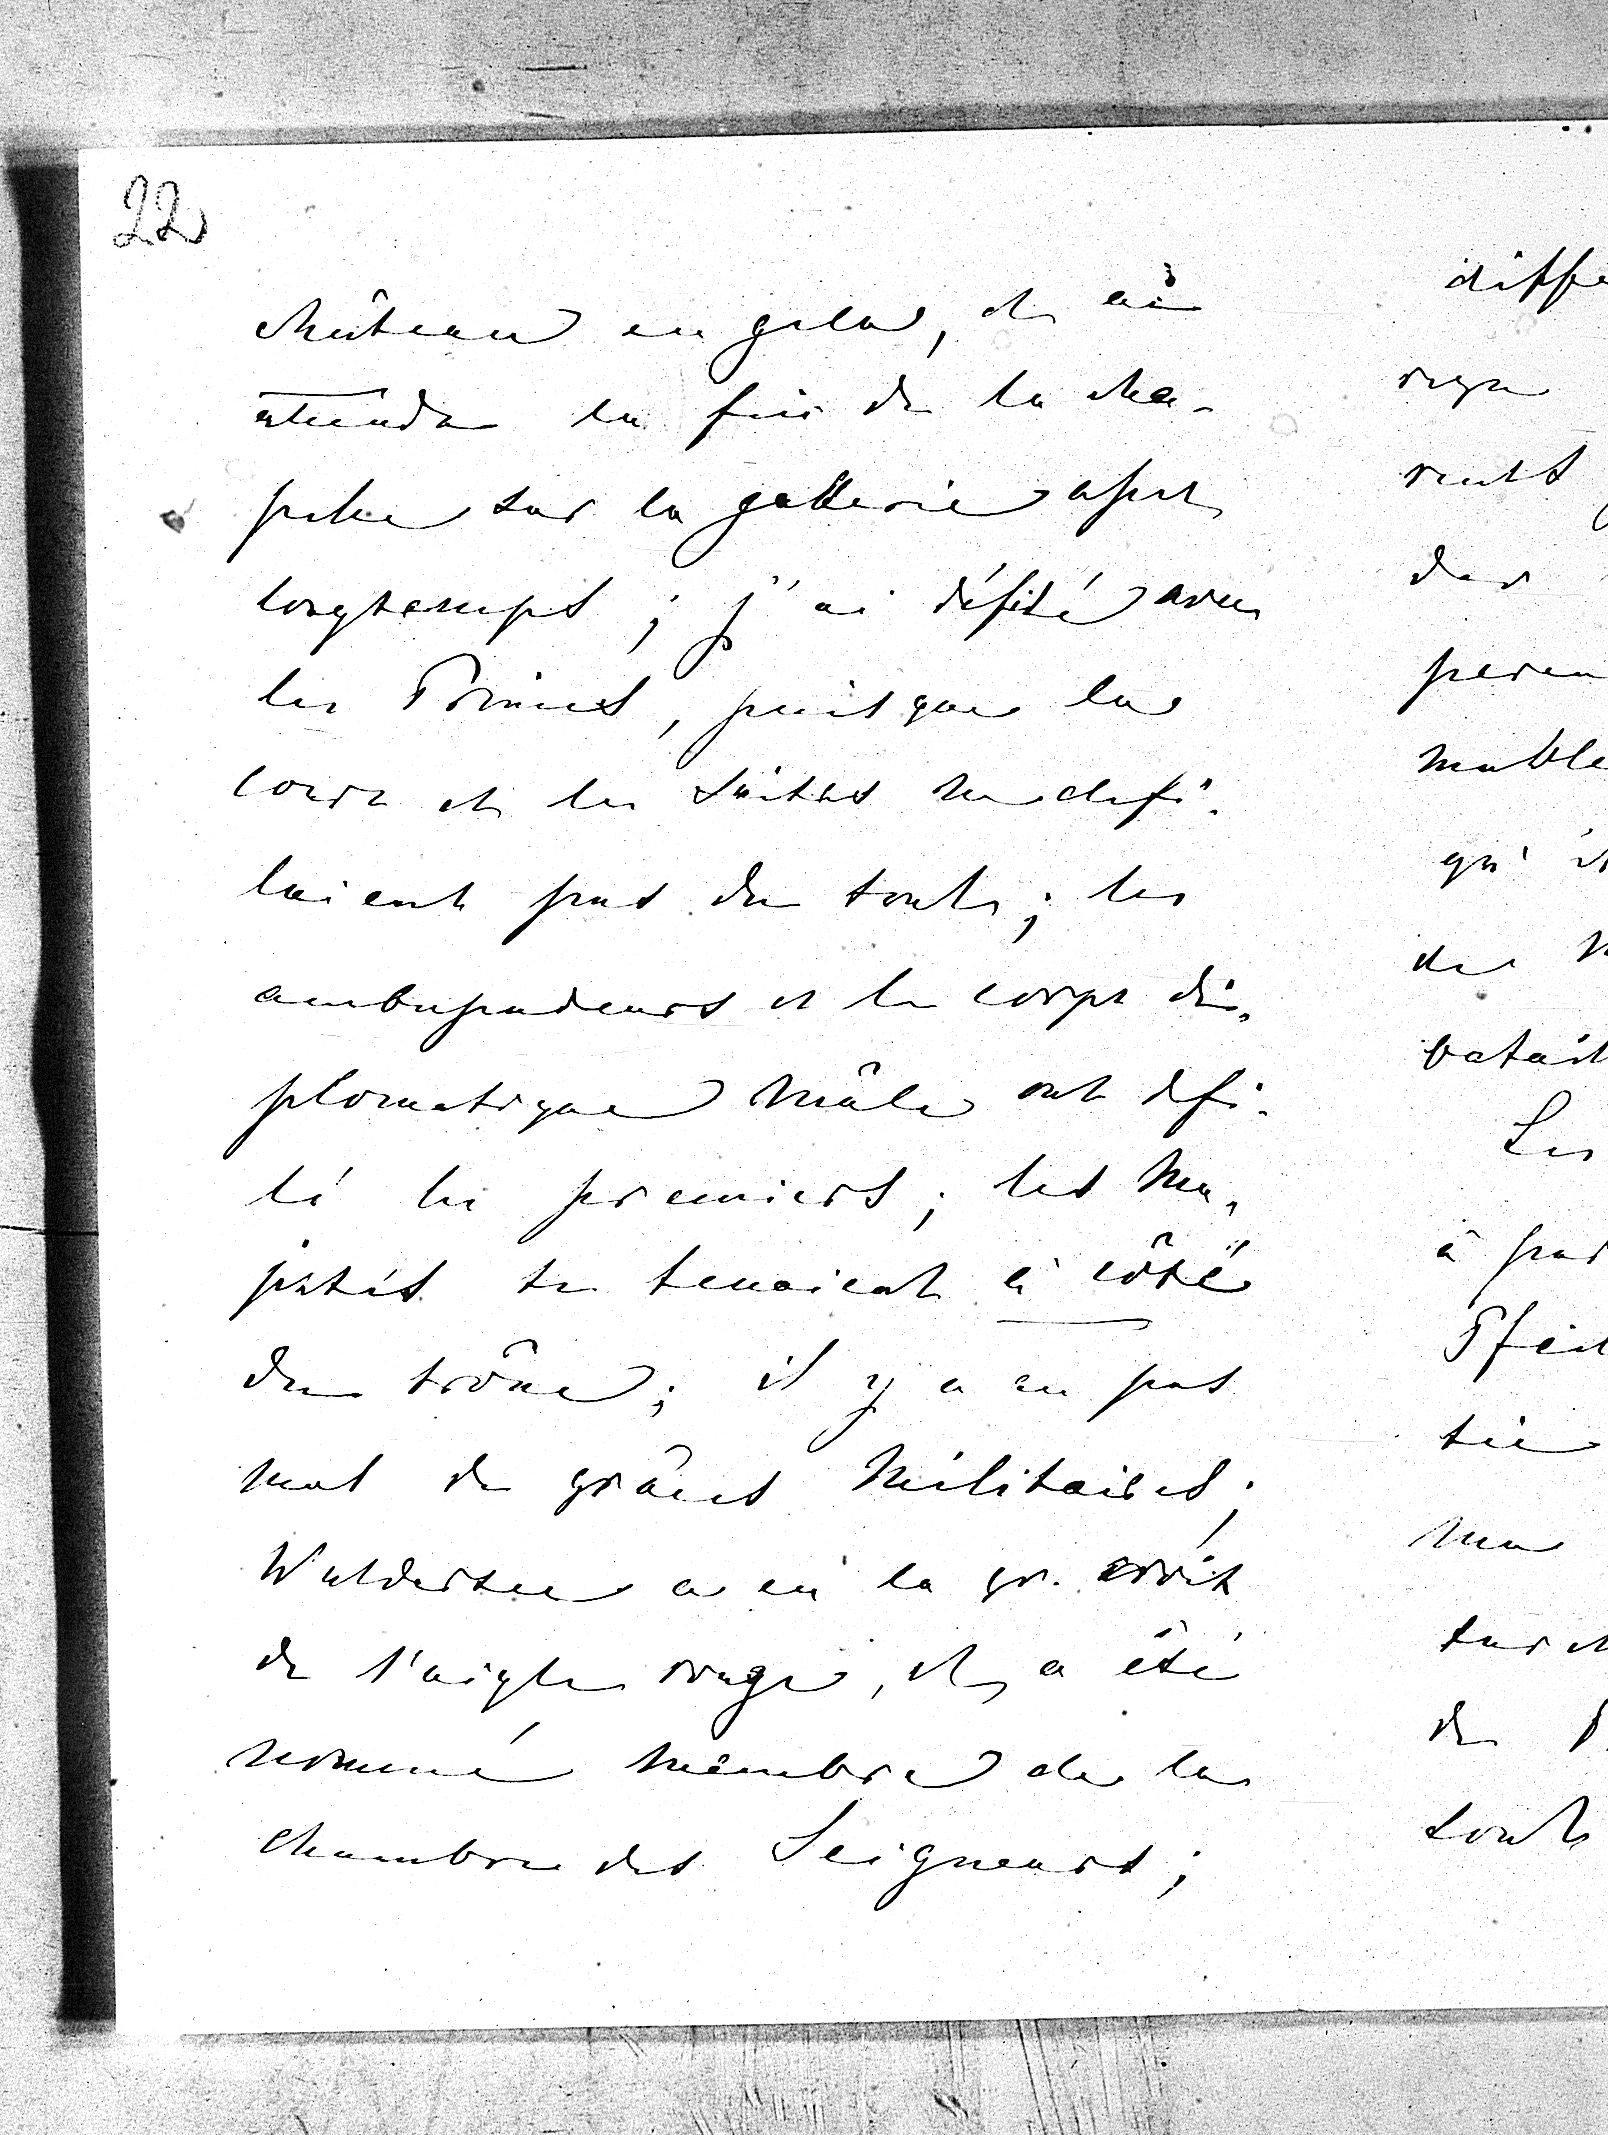 22
château en gala, et ai
attendu la fin de la cha-
pelle sur la gallerie assez
longtemps; j'ai défilé avec
les Princes, puisque la
cour et les suites ne défi-
laient pas du tout; les
ambassadeurs et le corps di-
plomatique mâle ont défi-
lé les premiers; les Ma-
jestés se tenaient à côté
du trône; il y a eu pas
mal de grâces militaires;
Waldersee a eu la gr. croix
de l'aigle rouge, et a été
nommé membre de la
chambre des Seigneurs;
diffe
rents
der
qu'il
batail
Les
à par
tie
ma
de
tout